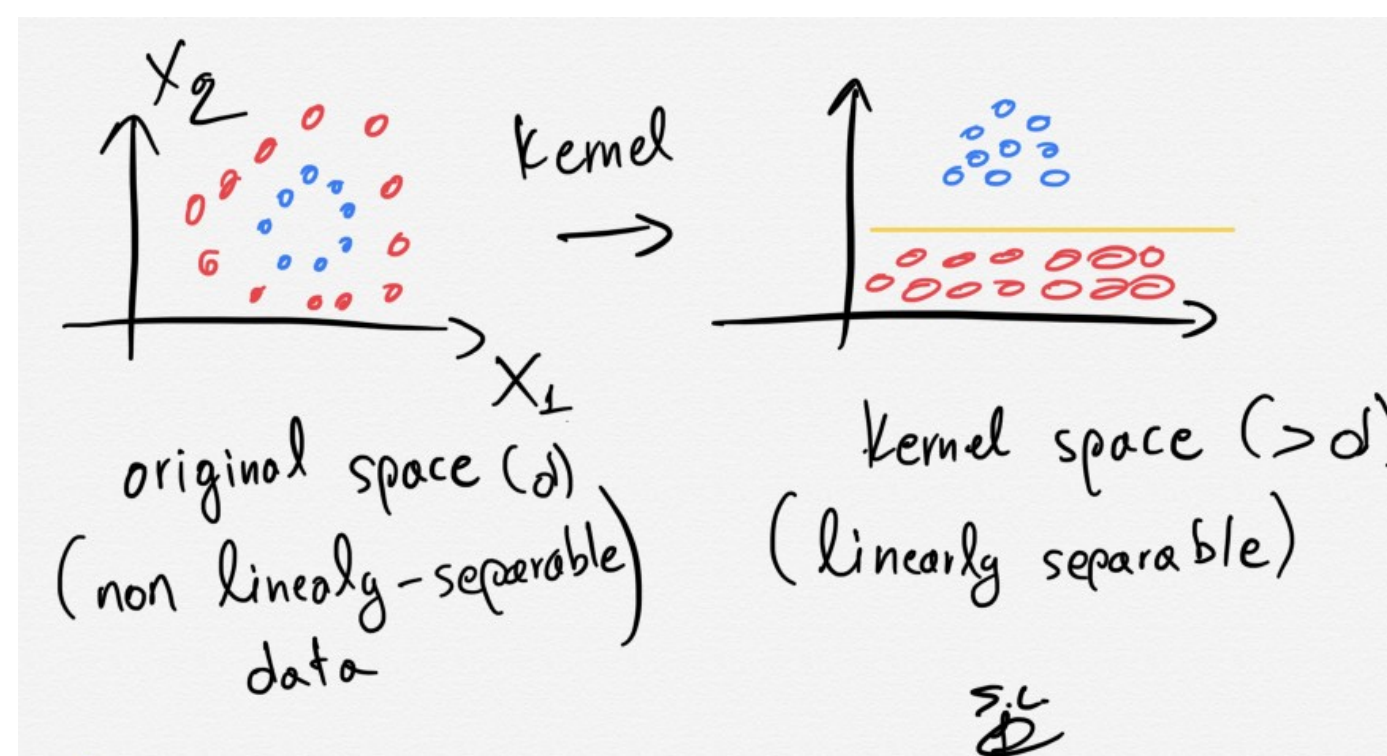 X2
Kernel
X1
original space (d)
(non linealy-separable)
data
kernel space (>d)
(linearly separable)
S.C